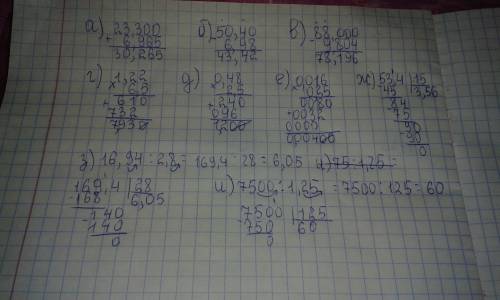 а) 23,300 б) 50,40 в) 88,000
+ 6,965 - 6,98 - 9,804
30,265 43,42 78,196
г) 1,22 д) 0,48 е) 0,016 ж) 53,4 | 15
× 6,5 × 25 × 0,025 45 | 3,56
+ 610 + 240 0080 84
732 096 0032 75
7930 1200 0000 90
000400 90
0
з) 16,94 : 2,8 = 169,4 : 28 = 6,05 и) 75 : 1,25 =
169,4 | 28 и) 7500 : 1,25 = 7500 : 125 = 60
-168 | 6,05 7500 | 125
-140 750 | 60
140 0
0